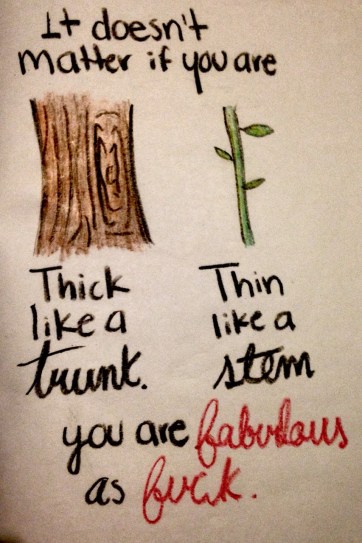 It doesn't
matter if you are
Thick
like a
trunk.
Thin
like a
stem
you are fabulous
as fuck.